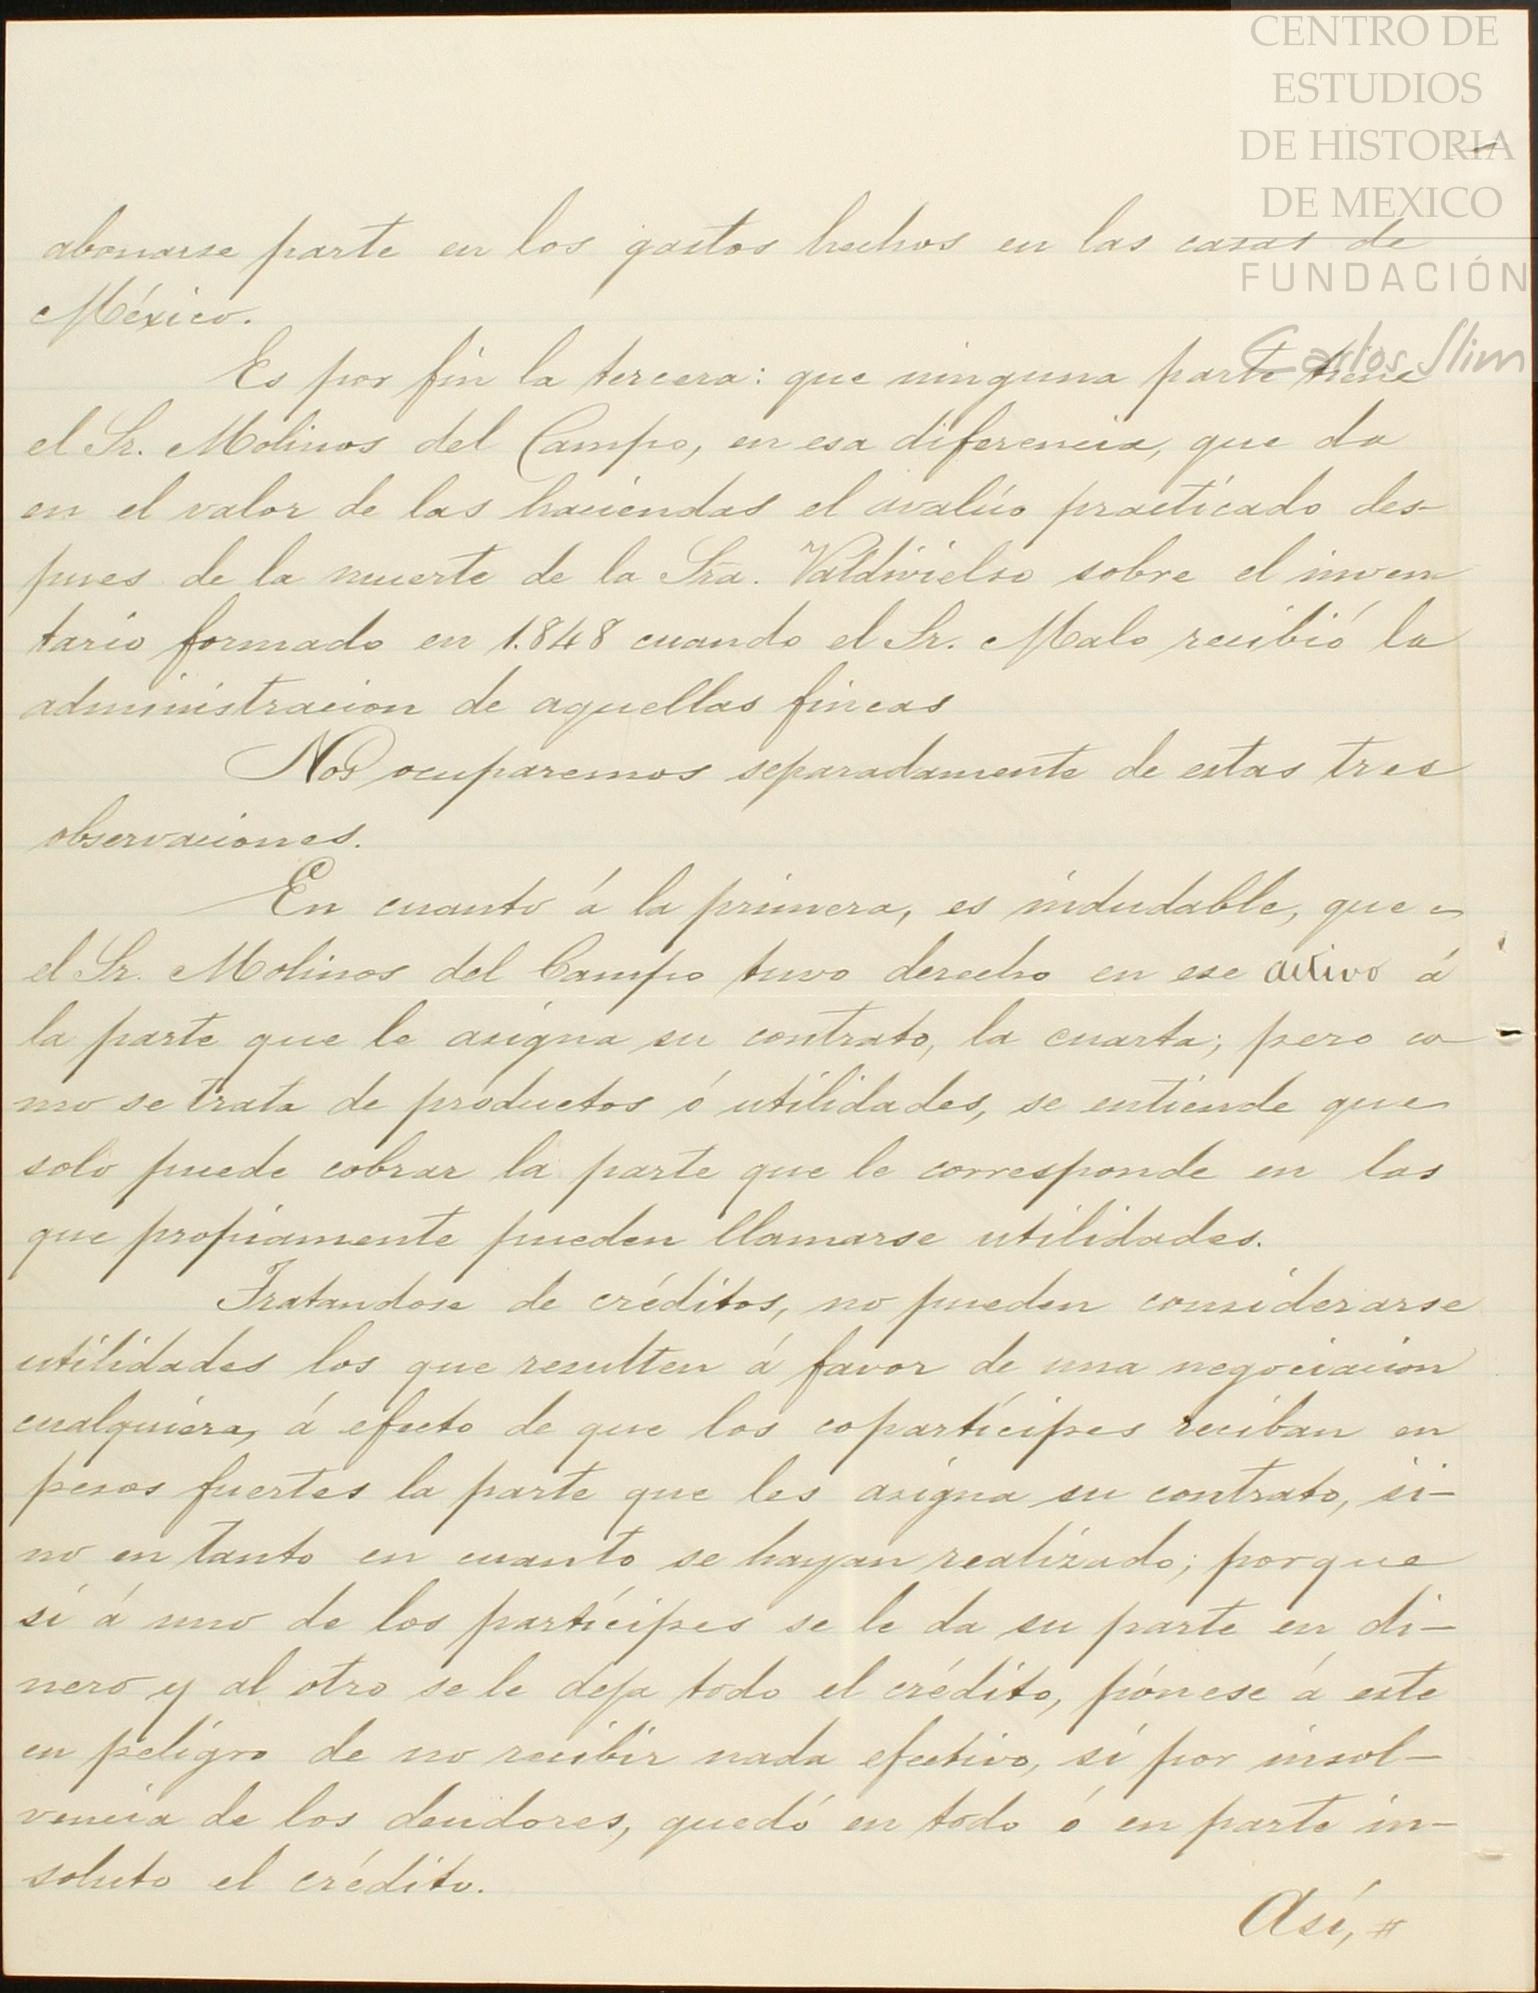 CENTRO DE
ESTUDIOS
DE HISTORIA
DE MEXICO
FUNDACIÓN
Carlos Slim
abonarse parte en los gastos hechos en las casas de
México.
Es por fin la tercera: que ninguna parte tiene
el Sr. Molinos del Campo, en esa diferencia, que da
en el valor de las haciendas el avalúo practicado des-
pues de la muerte de la Sra. Valdivielso sobre el inven
tario formado en 1.848 cuando el Sr. Malo recibió la
administracion de aquellas fincas
Nos ocuparemos separadamente de estas tres
observaciones.
En cuanto á la primera, es indudable, que
el Sr. Molinos del Campo tuvo derecho en ese activo á
la parte que le asigna su contrato, la cuarta; pero co
mo se trata de productos ó utilidades, se entiende que
solo puede cobrar la parte que le corresponde en las
que propiamente pueden llamarse utilidades.
Tratandose de créditos, no pueden considerarse
utilidades los que resulten á favor de una negociacion
cualquiera, á efecto de que los copartícipes reciban en
pesos fuertes la parte que les asigna su contrato, si-
no en tanto en cuanto se hayan realizado; porque
si á uno de los partícipes se le da su parte en di-
nero y al otro se le deja todo el crédito, pónese á este
en peligro de no recibir nada efectivo, si por insol-
vencia de los deudores, quedó en todo ó en parte in-
soluto el crédito.
Así,